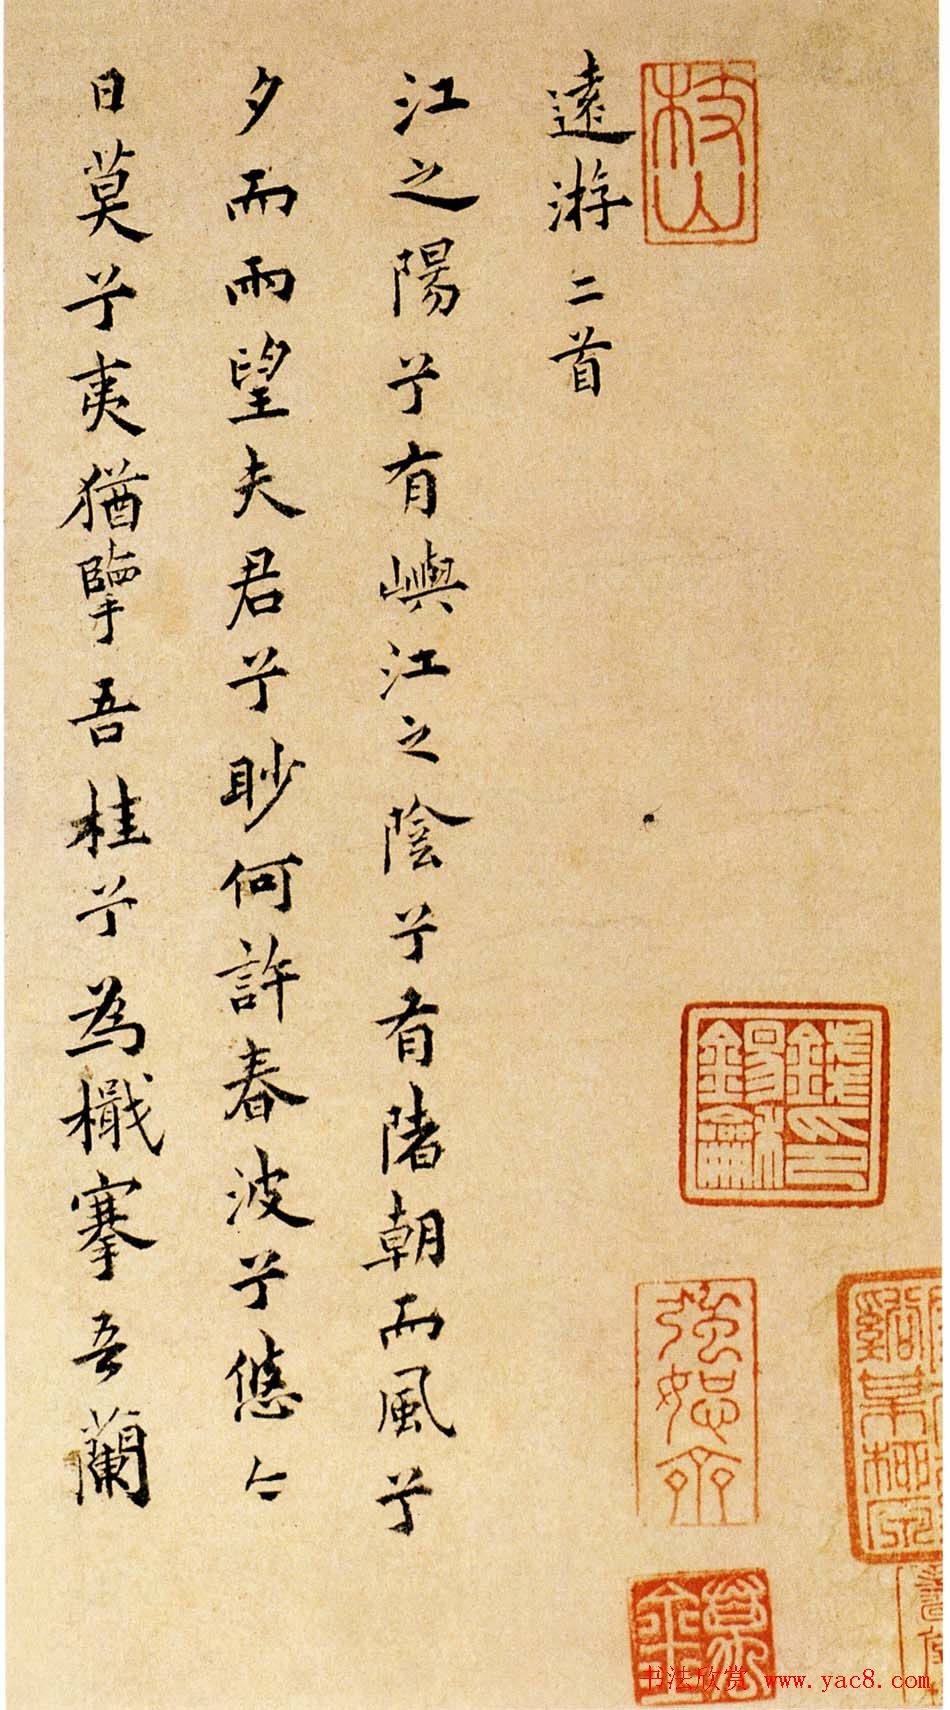 枝山
遠游二首
江之陽兮有嶼江之陰兮有陼朝而風兮
夕而雨望夫君兮眇何許春波兮悠々
日莫兮夷猶擥吾桂兮為檝搴吾蘭
強恕齋
书法欣赏 www.yac8.com